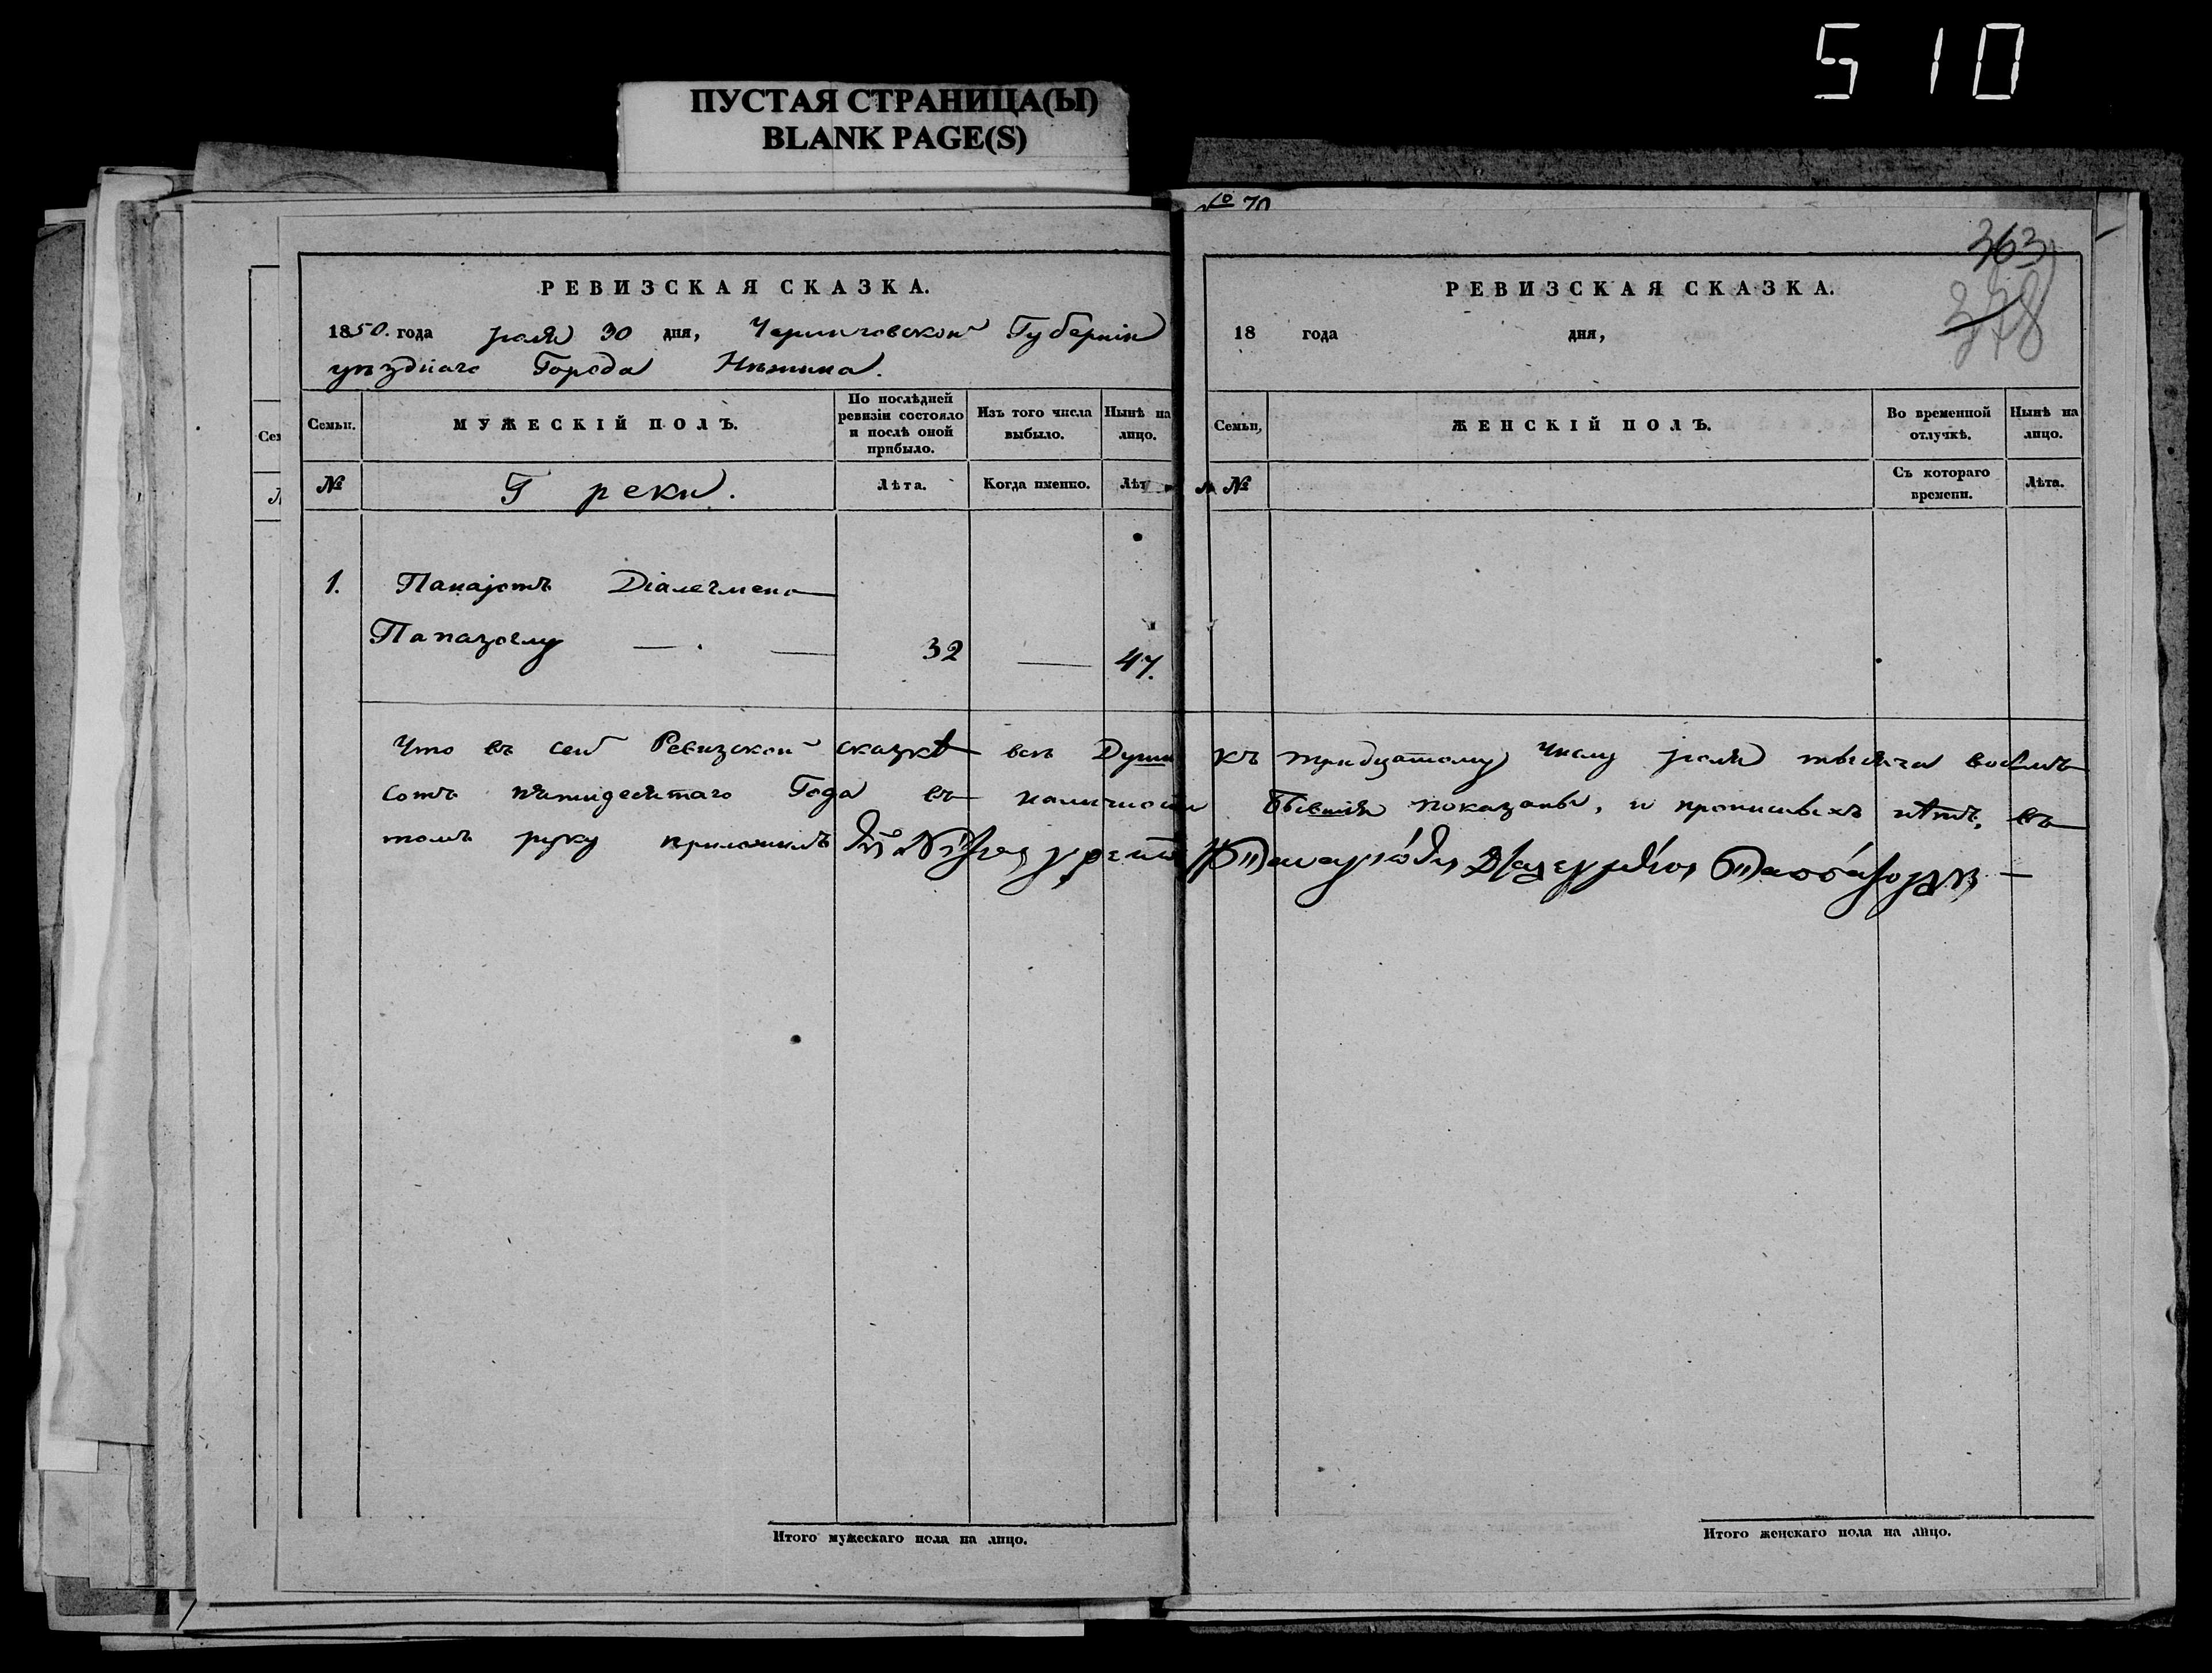 510
ПУСТАЯ СТРАНИЦА(Ы)
BLANK PAGE(S)
№ 70
363
378
РЕВИЗСКАЯ СКАЗКА.
1850. года июля 30 дня, Черниговской Губерніи
уѣзднаго Города Нѣжина.
Семьи. МУЖЕСКІЙ ПОЛЪ. По послѣдней ревизіи состояло и послѣ оной прибыло. Изъ того числа выбыло. Нынѣ на лицо.
№ Греки. Лѣта. Когда именно. Лѣт
1. Панаjотъ Діалегмено
Папазоглу 32 47.
РЕВИЗСКАЯ СКАЗКА.
18 года дня,
Семьи, ЖЕНСКІЙ ПОЛЪ. Во временной отлучкѣ. Нынѣ на лицо.
№ Съ котораго времени. Лѣта.
Что въ сей Ревизской сказкѣ всѣ Души къ тридцатому числу июля тысяча восемь
сотъ пятидесятаго Года въ наличности бывшія показаны, и прописныхъ нѣтъ, въ
томъ руку приложилъ
Итого мужескаго пола на лицо.
Итого женскаго пола на лицо.